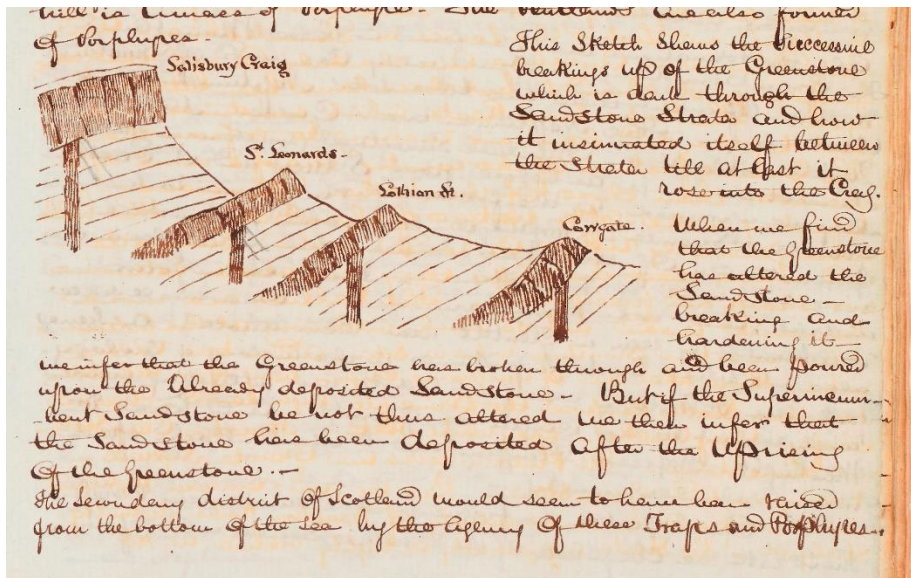 hill is a mass of Porphyre. The Pentlands are also formed
of Porphyres.
This Sketch Shews the Successive
breakings up of the Greenstone
which is dark through the
Sandstone Strata and how
it insinuated itself between
the Strata till at last it
rose into the Craig.
Salisbury Craig
St. Leonards.
Lothian St.
Cowgate.
When we find
that the Greenstone
has altered the
Sandstone —
breaking and
hardening it —
we infer that the Greenstone has broken through and been poured
upon the Already deposited Sandstone — But if the Superincum-
-bent Sandstone be not thus altered we then infer that
the Sandstone has been deposited After the Uprising
Of the Greenstone. —
The Secondary district of Scotland would seem to have been raised
from the bottom of the Sea by the Agency Of these Traps and Porphyres.